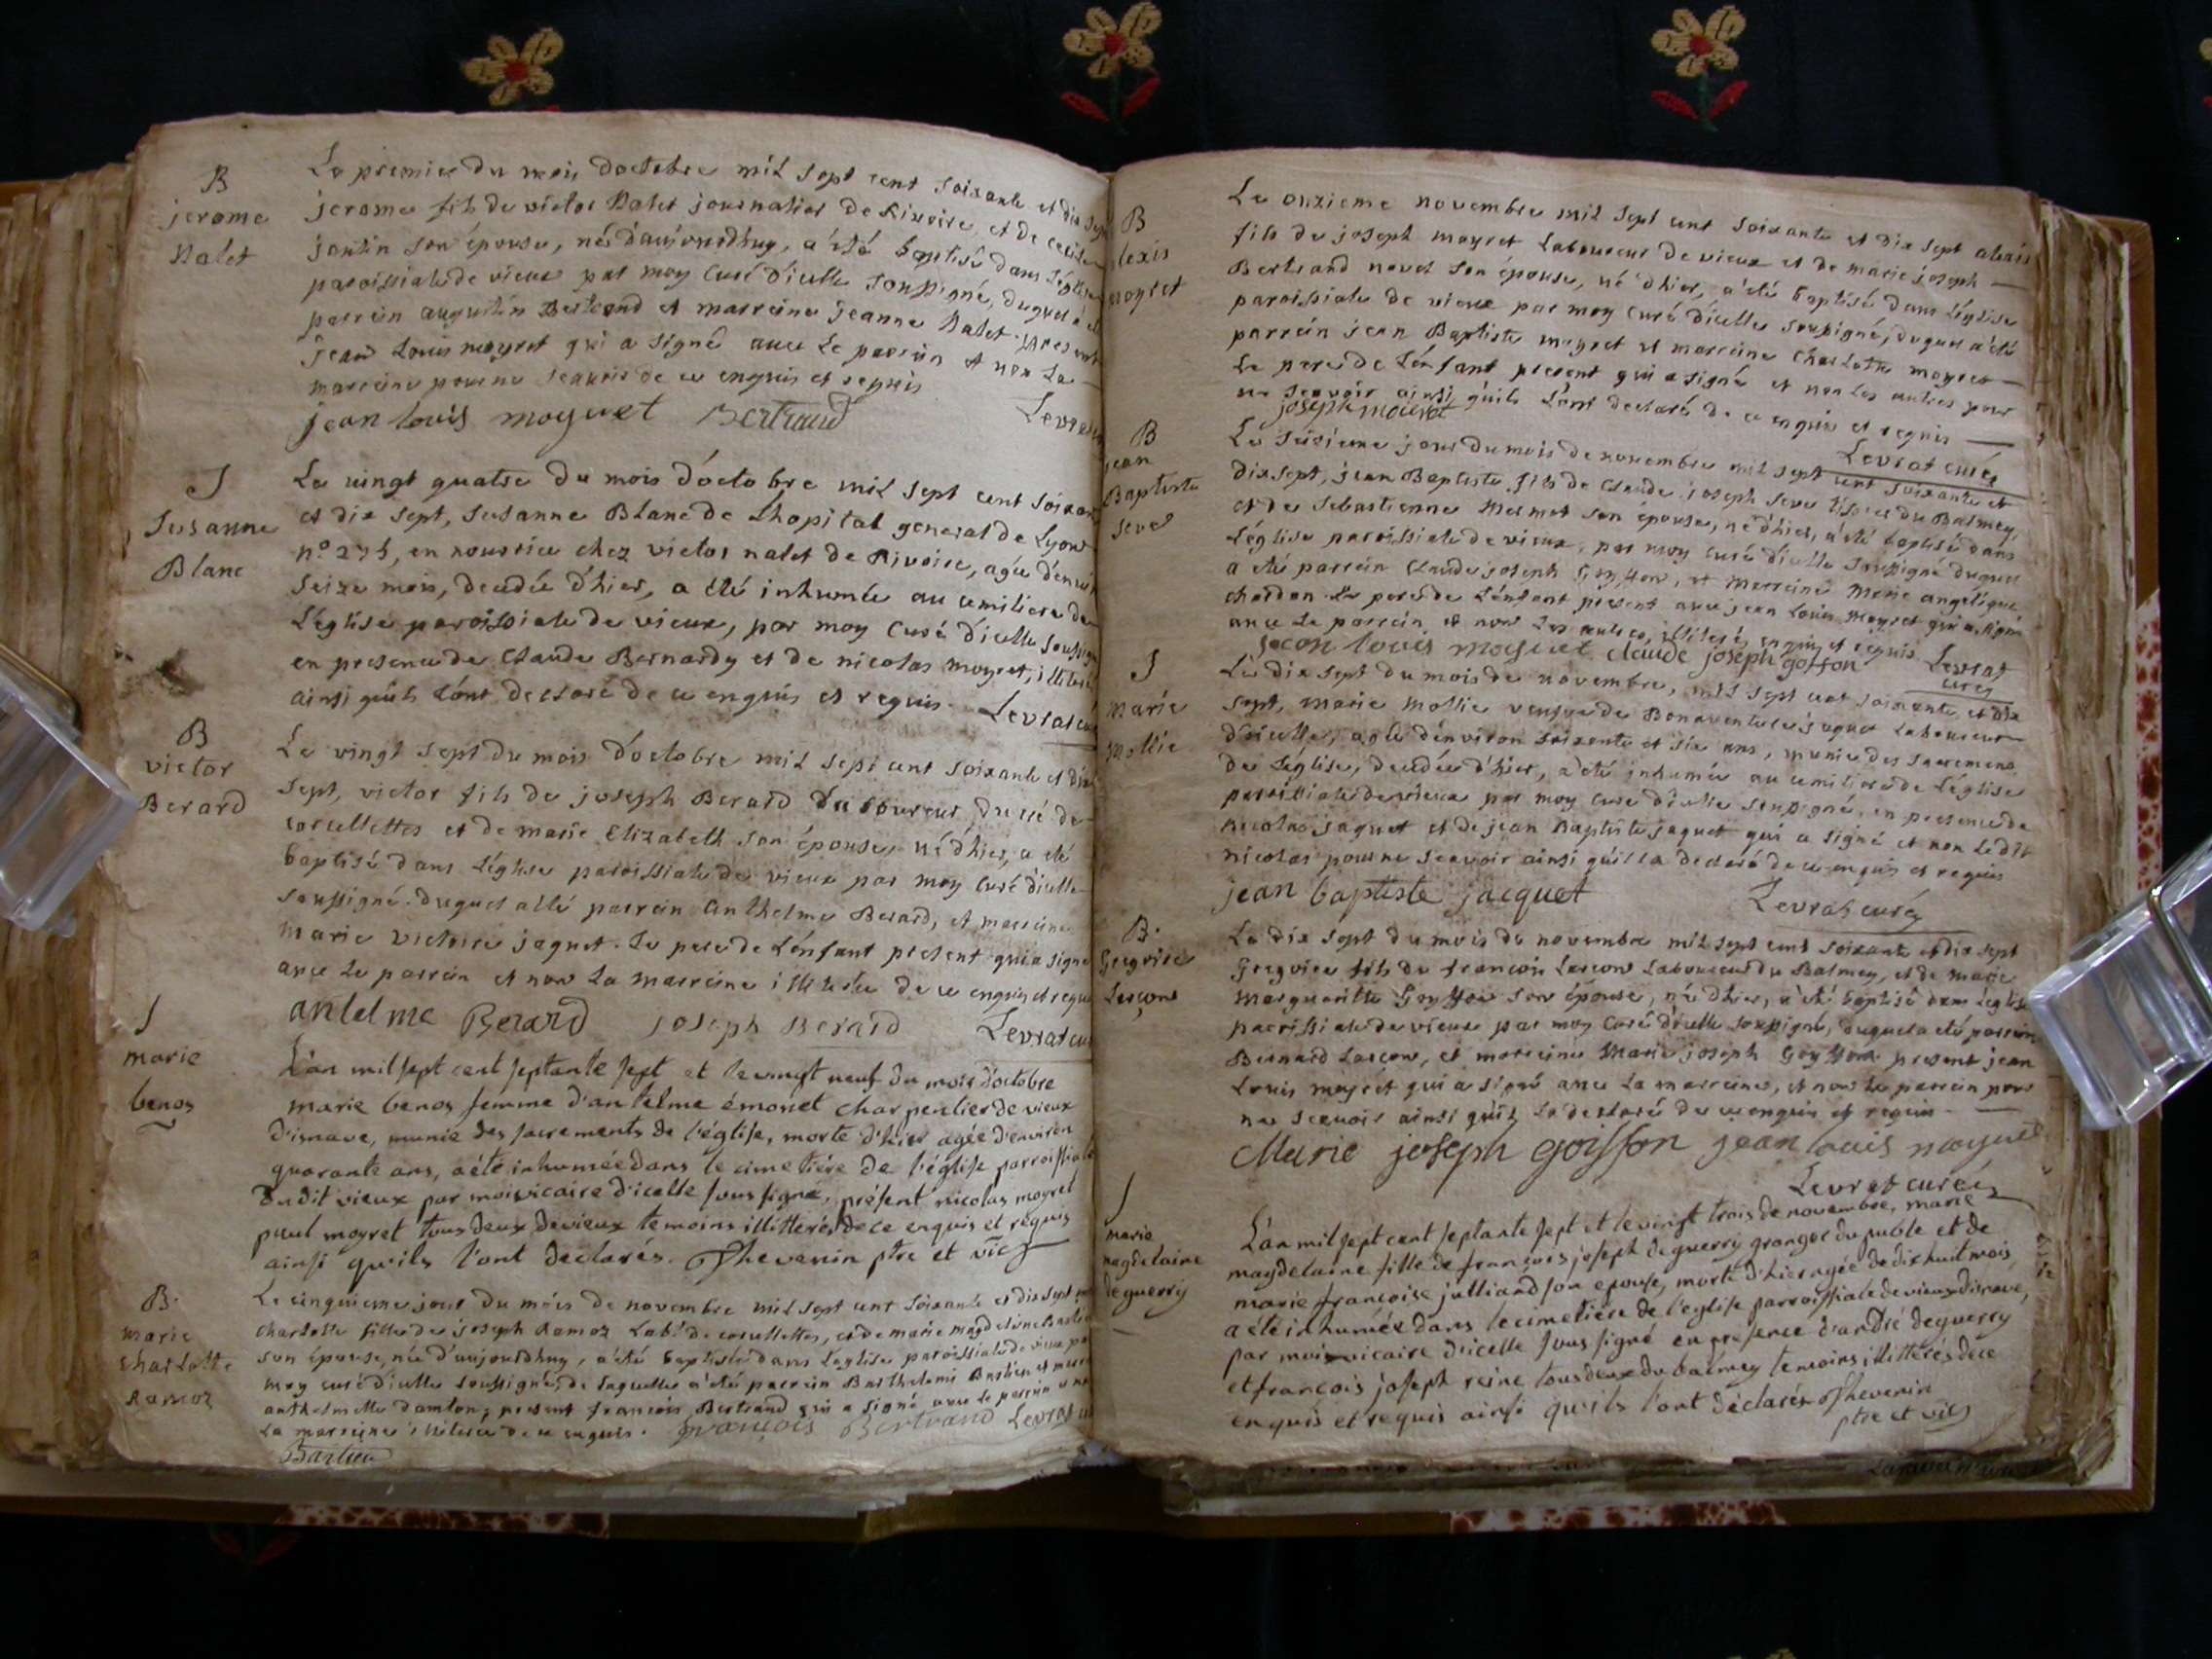 B
jerome
Nalet
Le premier du mois doctobre mil sept cent soixante et dix sept
jerome fils de victor Nalet journalier de Rivoire, et de cecile
jantin son épouse, né d'aujourdhuy, a été baptisé dans l'église
paroissiale de vieux par moy curé d'icelle soussigné, duquel a été
parrein augustin Bertrand et marreine jeanne Nalet. present
jean Louis moyret qui a signé avec Le parrein et non La
marreine pour ne sçavoir de ce enquis et requis
jean louis moyret Bertrand Levrat
S
Susanne
Blanc
Le vingt quatre du mois d'octobre mil sept cent soixante
et dix sept, susanne Blanc de L'hopital general de Lyon
en nourrice chez victor nalet de Rivoire, agée d'environ
seize mois, decedée d'hier, a été inhumée au cemitiere de
L'église paroissiale de vieux, par moy Curé d'icelle soussigné
en presence de Claude Bernardy et de nicolas moyret, illiterés
ainsi qu'ils L'ont declaré de ce enquis et requis. Levrat curé
B
victor
Berard
Le vingt sept du mois d'octobre mil sept cent soixante et dix
sept, victor fils de joseph Berard Laboureur du
corcellettes et de marie Elizabeth son épouse, né d'hier, a été
baptisé dans L'église paroissiale de vieux par moy curé d'icelle
soussigné. duquel a été parrein anthelme Berard, et marreine
marie victoire jaquet. Le pere de L'enfant present qui a signé
avec Le parrein et non La marreine illiterée de ce enquis et requis
antelme Berard joseph Berard Levrat curé
S
marie
benoz
L'an mil sept cent septante sept et le vingt neuf du mois d'octobre
marie benoz femme d'antelme émonet charpentier de vieux
d'isnave, munie des sacrements de l'église, morte d'hier agée d'environ
quarante ans, a été inhumée dans le cimetiére de l'église parroissiale
dudit vieux par moi vicaire d'icelle sous signé, présent nicolas moyret
paul moyret tous deux de vieux temoins illitterés de ce enquis et requis
ainsi qu'ils l'ont declarés. Thevenin ptre et vic
B.
marie
charlotte
Ramoz
Le cinquieme jour du mois de novembre mil sept cent soixante et dix sept
charlotte fille de joseph Ramoz Labr de corcellettes, et de marie magdeleine
son épouse, née d'aujourdhuy, a été baptisée dans L'eglise paroissiale de vieux par
moy curé d'icelle soussigné, de Laquelle a été parrein Barthelemi Bastien et marreine
anthelmette damlon, present francois Bertrand qui a signé avec Le parrein et non
La marreine illiterée de ce enquis. françois Bertrand Levrat
Bastien
B
alexis
moyret
Le onzieme novembre mil sept cent soixante et dix sept alexis
fils de joseph moyret Laboureur de vieux et de marie joseph
Bertrand novel son épouse, né d'hier, a été baptisé dans L'église
paroissiale de vieux par moy curé d'icelle soussigné, duquel a été
parrein jean Baptiste moyret et marreine charlotte moyret
Le pere de L'enfant present qui a signé et non les autres pour
ne sçavoir ainsi qu'ils L'ont declaré de ce enquis et requis
joseph moiret
Levrat curé
B
jean
Baptiste
seve
Le seizieme jour du mois de novembre mil sept cent soixante et
dix sept, jean Baptiste fils de Claude joseph seve du Balmey
et de sebastienne mermet son épouse, né d'hier, a été baptisé dans
L'église paroissiale de vieux, par moy curé d'icelle soussigné duquel
a été parrein Claude joseph Goyffon, et marreine Marie angelique
chardon Le pere de L'enfant present avec jean Louis moyret qui a signé
avec Le parrein et non Les autres illiterés enquis et requis
jean louis moyret claude joseph goffon Levrat
curé
S
Marie
Mollie
Le dix sept du mois de novembre, mil sept cent soixante et dix
sept, marie mollie veufve de Bonaventure jaquet Laboureur
d'icelle, agée d'environ soixante et six ans, munie des sacremens
de L'église, decedée d'hier, a été inhumée au cemitiere de L'église
paroissiale de vieux par moy curé d'icelle soussigné, en presence de
nicolas jaquet et de jean Baptiste jaquet qui a signé et non Ledit
nicolas pour ne sçavoir ainsi qu'il L'a declaré de ce enquis et requis
jean baptiste jacquet Levrat curé
B.
Gregoire
Larçon
Le dix sept du mois de novembre mil sept cent soixante et dix sept
Gregoire fils de françois Larçon Laboureur du Balmey, et de marie
marguerite Goyffon son épouse, né d'hier, a été baptisé dans L'église
paroissiale de vieux par moy curé d'icelle soussigné, duquel a été parrein
Bernard Larçon, et marreine Marie joseph Goyffon present jean
Louis moyret qui a signé avec La marreine, et non Le parrein pour
ne sçavoir ainsi qu'il L'a declaré de ce enquis et requis
Marie joseph goiffon jean louis moyret
Levrat curé
S
marie
magdelaine
deguerry
L'an mil sept cent septante sept et le vingt trois de novembre, marie
magdelaine fille de françois joseph deguerry granger du puble et de
marie françoise julliand son epouse, morte d'hier agée de dix huit mois,
a été inhumée dans le cimetiére de l'eglise parroissiale de vieux d'isnave,
par moi vicaire d'icelle sous signé en presence d'andré deguerry
et françois joseph reine tous deux du balmey temoins illitterés de ce
enquis et requis ainsi qu'ils l'ont déclarés Thevenin
ptre et vic